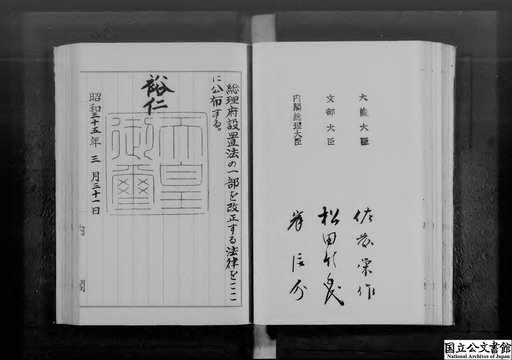 総理府設置法の一部を改正する法律をここ
に公布する。
裕仁
天皇御璽
昭和三十五年三月三十一日
内閣
大蔵大臣 佐藤栄作
文部大臣 松田竹千代
内閣総理大臣 岸信介
国立公文書館
National Archives of Japan